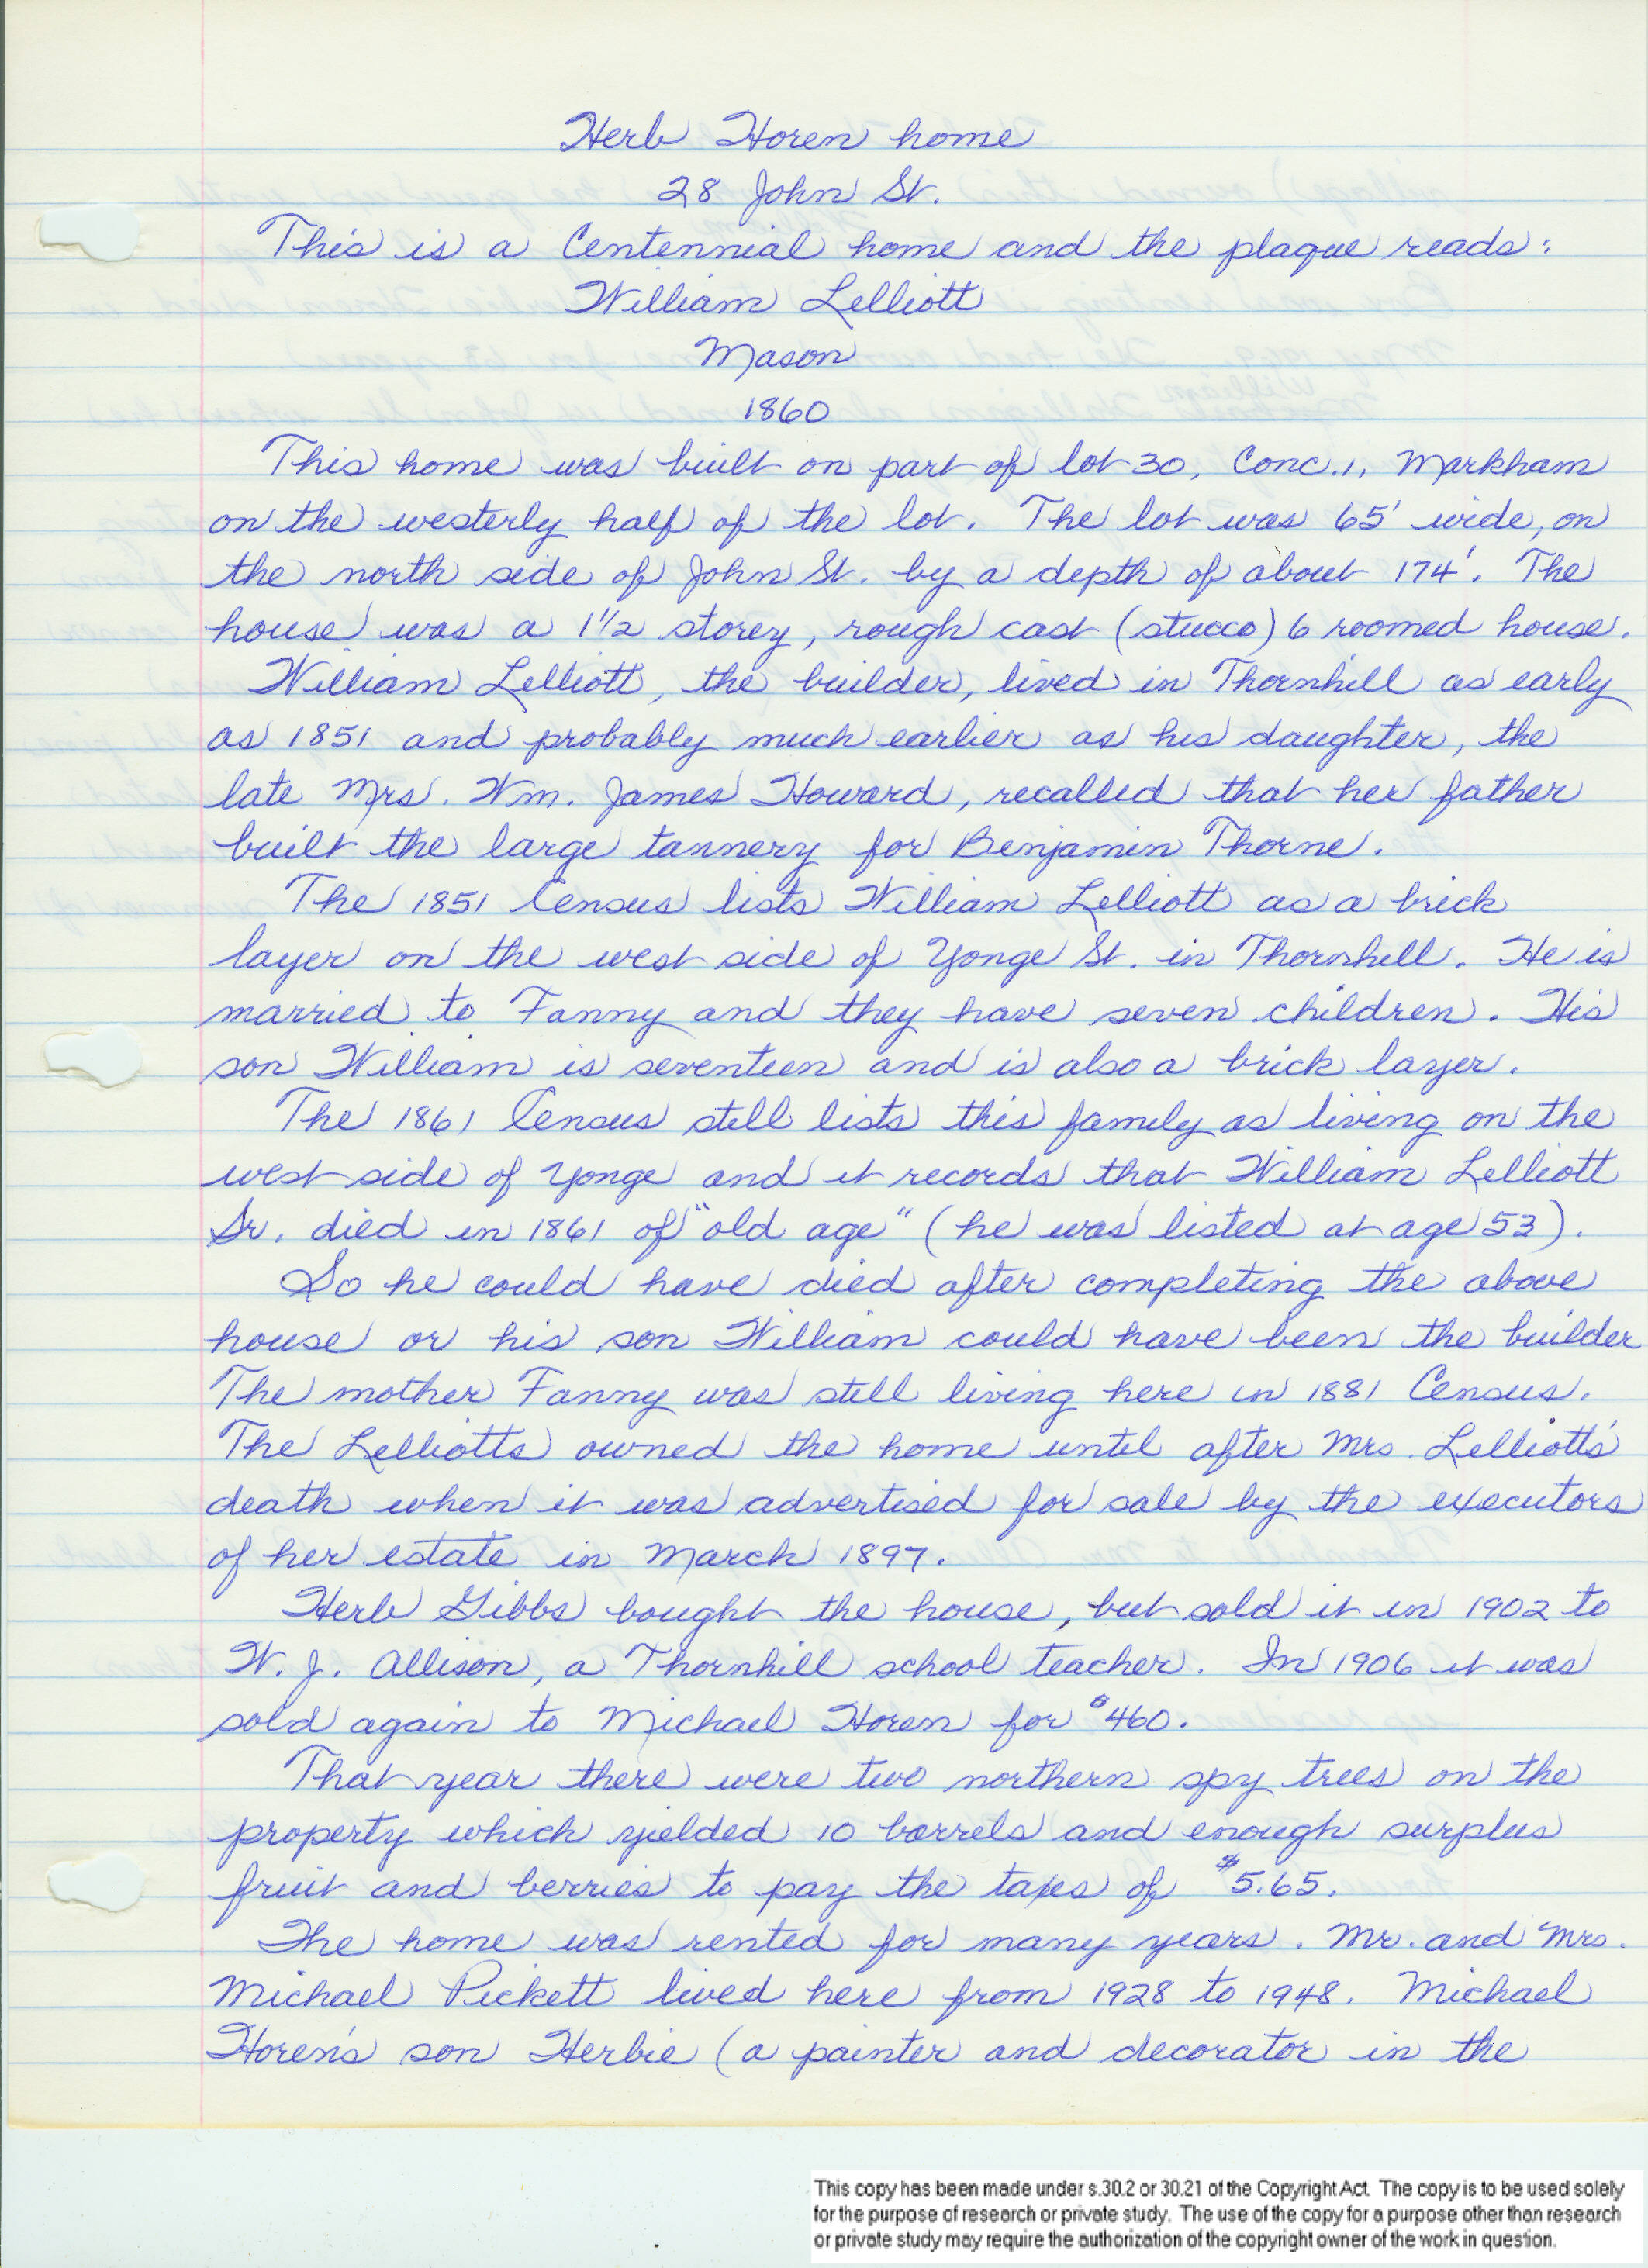 Herb Horen home
28 John St.
This is a Centennial home and the plaque reads:
William Lelliott
Mason
1860
This home was built on part of lot 30, Conc. 1, Markham
on the westerly half of the lot. The lot was 65' wide, on
the north side of John St. by a depth of about 174'. The
house was a 1½ storey, rough cast (stucco) 6 roomed house.
William Lelliott, the builder, lived in Thornhill as early
as 1851 and probably much earlier as his daughter, the
late Mrs. Wm. James Howard, recalled that her father
built the large tannery for Benjamin Thorne.
The 1851 Census lists William Lelliott as a brick
layer on the west side of Yonge St. in Thornhill. He is
married to Fanny and they have seven children. His
son William is seventeen and is also a brick layer.
The 1861 Census still lists this family as living on the
west side of Yonge and it records that William Lelliott
Sr. died in 1861 of "old age" (he was listed at age 53).
So he could have died after completing the above
house or his son William could have been the builder
The mother Fanny was still living here in 1881 Census.
The Lelliotts owned the home until after Mrs. Lelliott's
death when it was advertised for sale by the executors
of her estate in March 1897.
Herb Gibbs bought the house, but sold it in 1902 to
W. J. Allison, a Thornhill school teacher. In 1906 it was
sold again to Michael Horen for $460.
That year there were two northern spy trees on the
property which yielded 10 barrels and enough surplus
fruit and berries to pay the taxes of $5.65.
The home was rented for many years. Mr. and Mrs.
Michael Pickett lived here from 1928 to 1948. Michael
Horen's son Herbie (a painter and decorator in the
This copy has been made under s.30.2 or 30.21 of the Copyright Act. The copy is to be used solely
for the purpose of research or private study. The use of the copy for a purpose other than research
or private study may require the authorization of the copyright owner of the work in question.